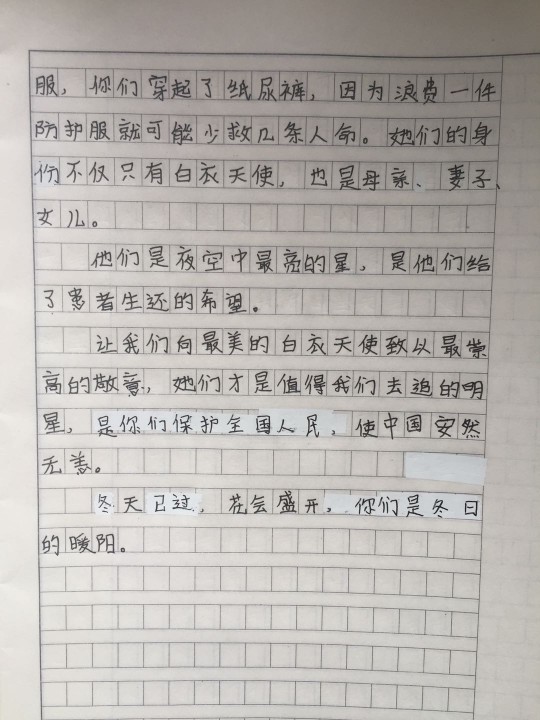 服，你们穿起了纸尿裤，因为浪费一件
防护服就可能少救几条人命。她们的身
份不仅只有白衣天使，也是母亲、妻子、
女儿。
他们是夜空中最亮的星，是他们给
了患者生还的希望。
让我们向最美的白衣天使致以最崇
高的敬意，她们才是值得我们去追的明
星，是你们保护全国人民，使中国安然
无恙。
冬天已过，花会盛开，你们是冬日
的暖阳。